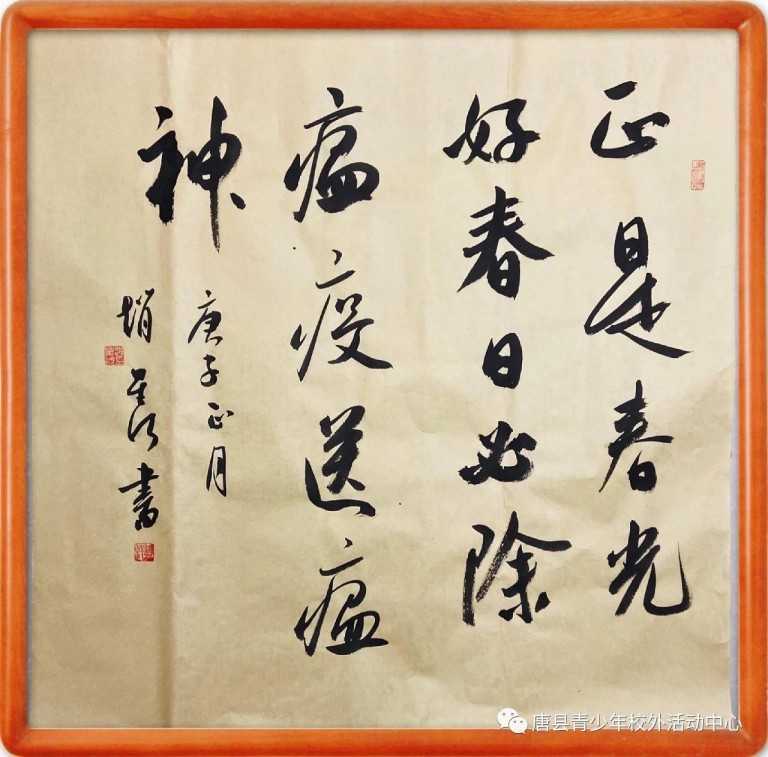 正是春光
好春日必除
瘟疫送瘟
神
庚子正月
书
唐县青少年校外活动中心